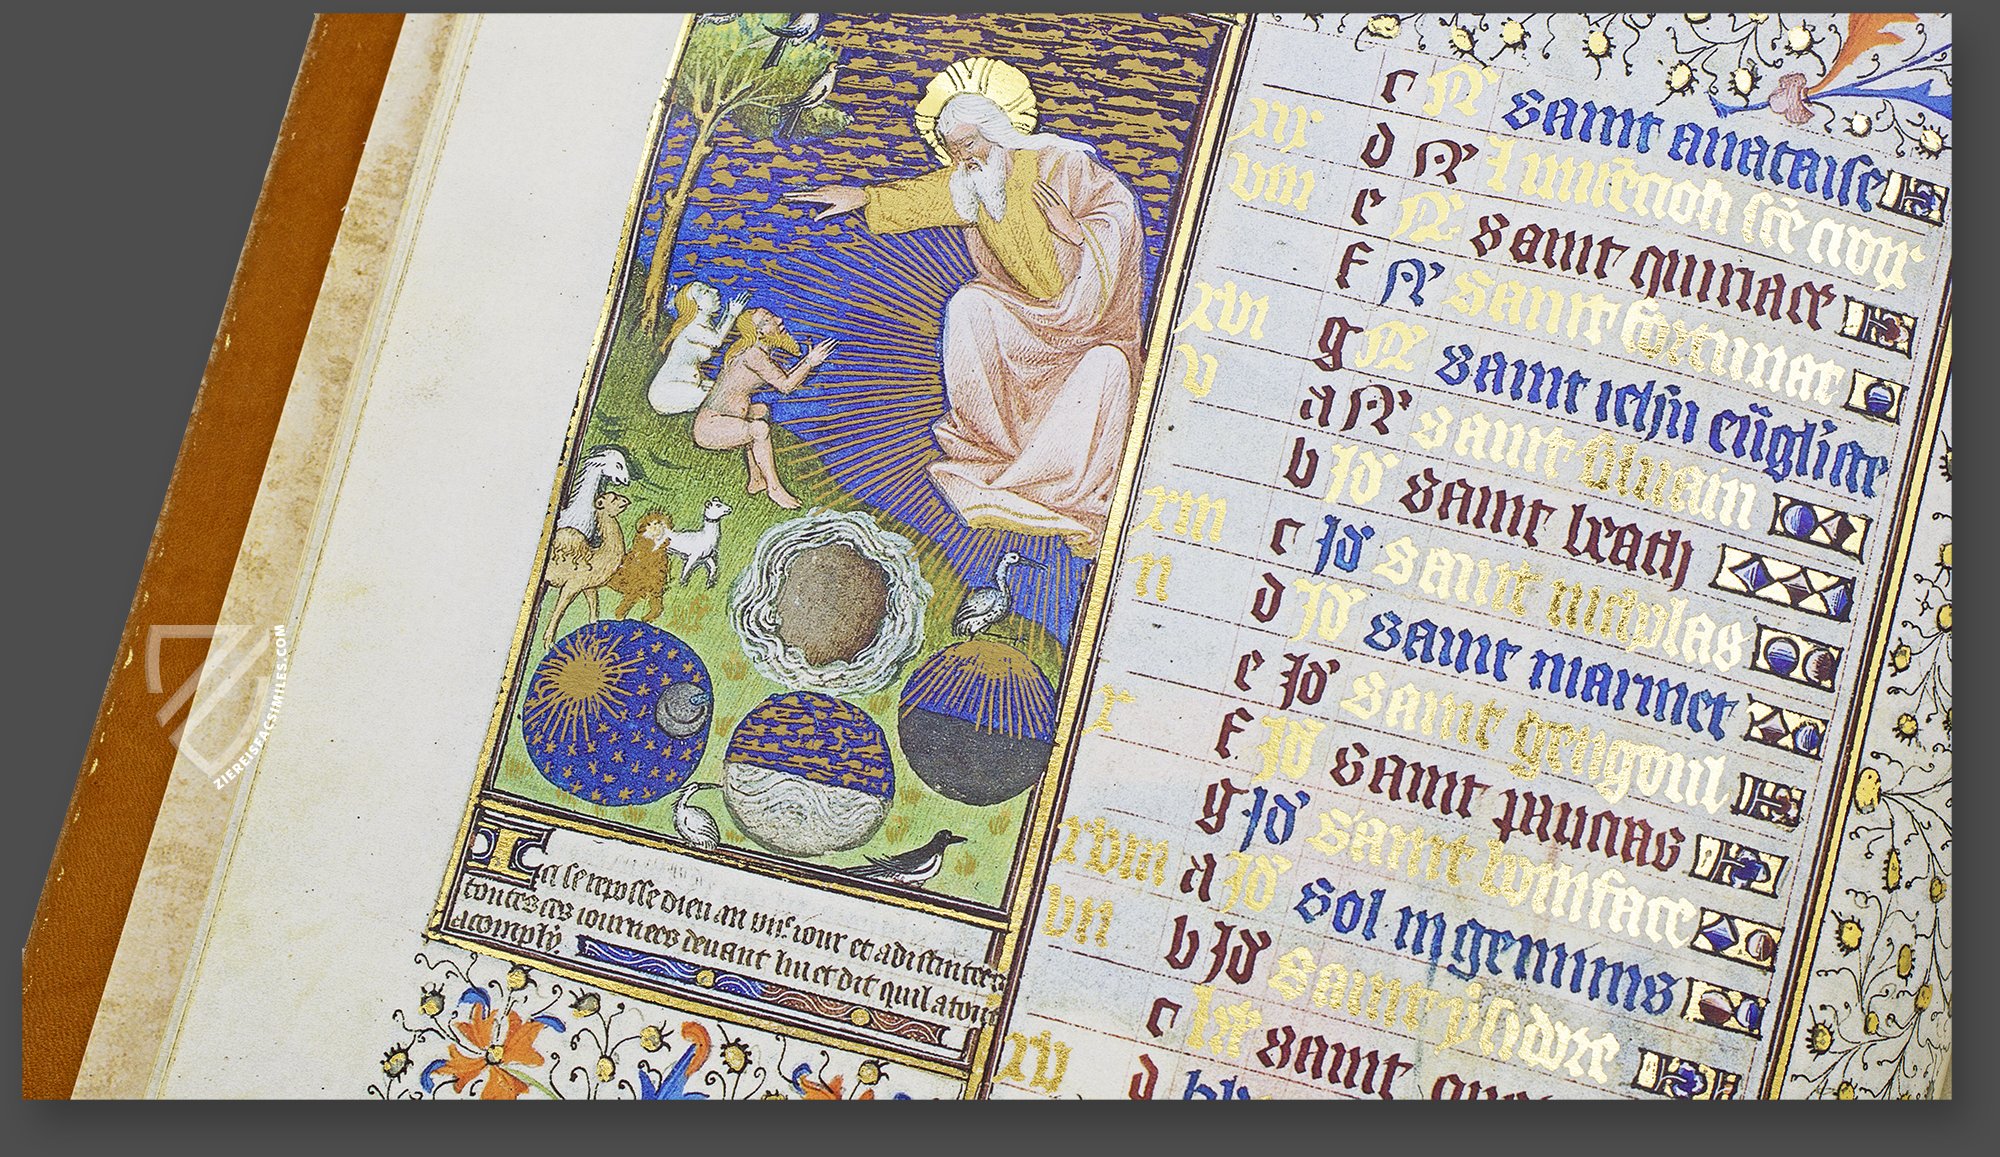 c N saint anataise
xix d N Inuencion sce croix
viii e N saint quiriace
f N saint fortunat
xvi g N saint iehn euglitte
v a N saint siluain
b Id saint beath
xiii c Id saint nicholas
ii d Id saint marmet
e Id saint gengoul
x f Id saint pannas
g Id saint boniface
xviii a Id sol in geminis
vii b Id saint ysidore
c saint
xv d kl
Ci se reposse dieu au viie iour et a distinctees
toutes ces iournees deuant lui et dit quil a tout
acomply
ZIEREISFACSIMILES.COM